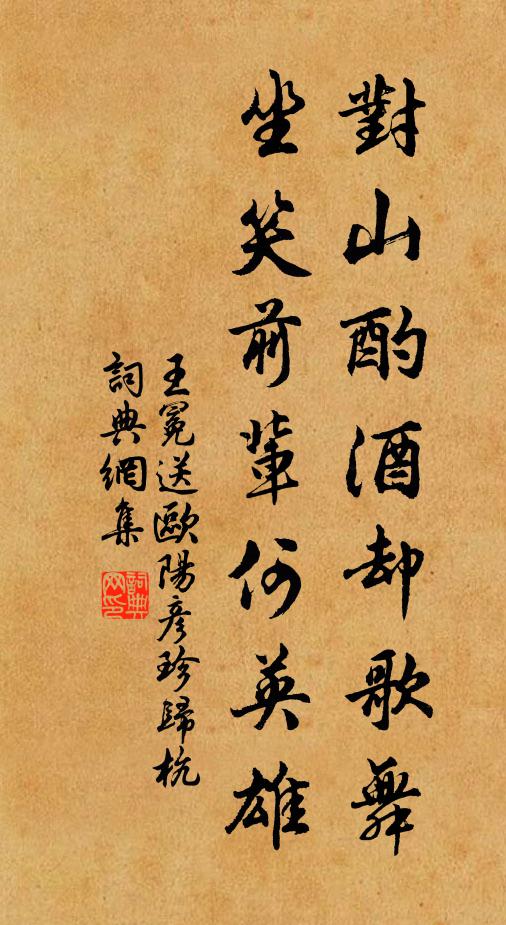 對山酌酒却歌舞
坐笑前輩何英雄
王冕送歐陽彦珍歸杭
詞典網集
詞典网印